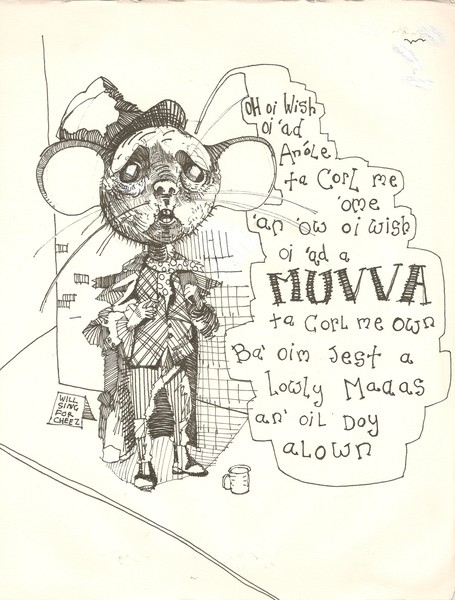 OH oi Wish
oi 'ad
An'ole
ta CorL me
'ome
'an 'ow oi wish
oi 'ad a
MUVVA
ta CorL me own
Ba' oim Jest a
Lowly Maaas
an' oiL Doy
aLown
WILL
SING
FOR
CHEEZ